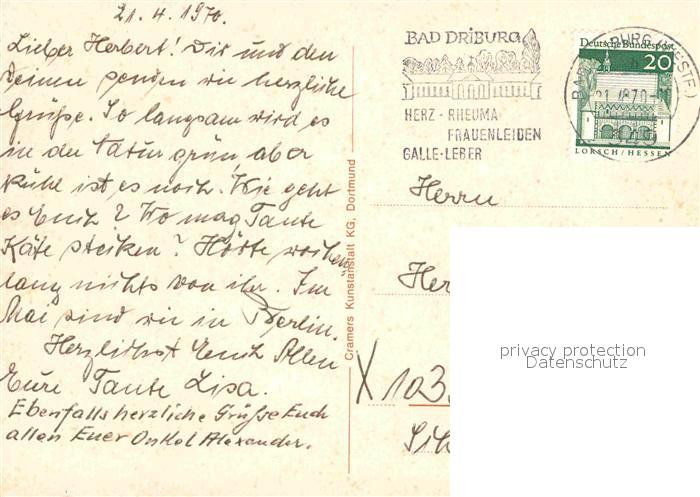 21.4.1970.
Lieber Herbert! Dir und den
Deinen senden wir herzliche
Grüße. So langsam wird es
in der Natur grün aber
kühl ist es noch. Wie geht
es Euch? Wo mag Tante
Käte stecken? Hörte wochen-
lang nichts von ihr. Im
Mai sind wir in Berlin.
Herzlichst Euch Allen
Eure Tante Lisa.
Ebenfalls herzliche Grüße Euch
allen Euer Onkel Alexander.
Cramers Kunstanstalt KG, Dortmund
BAD DRIBURG
HERZ · RHEUMA
FRAUENLEIDEN
GALLE · LEBER
Deutsche Bundespost
20
LORSCH/HESSEN
Herrn
Her
X 103
privacy protection
Datenschutz